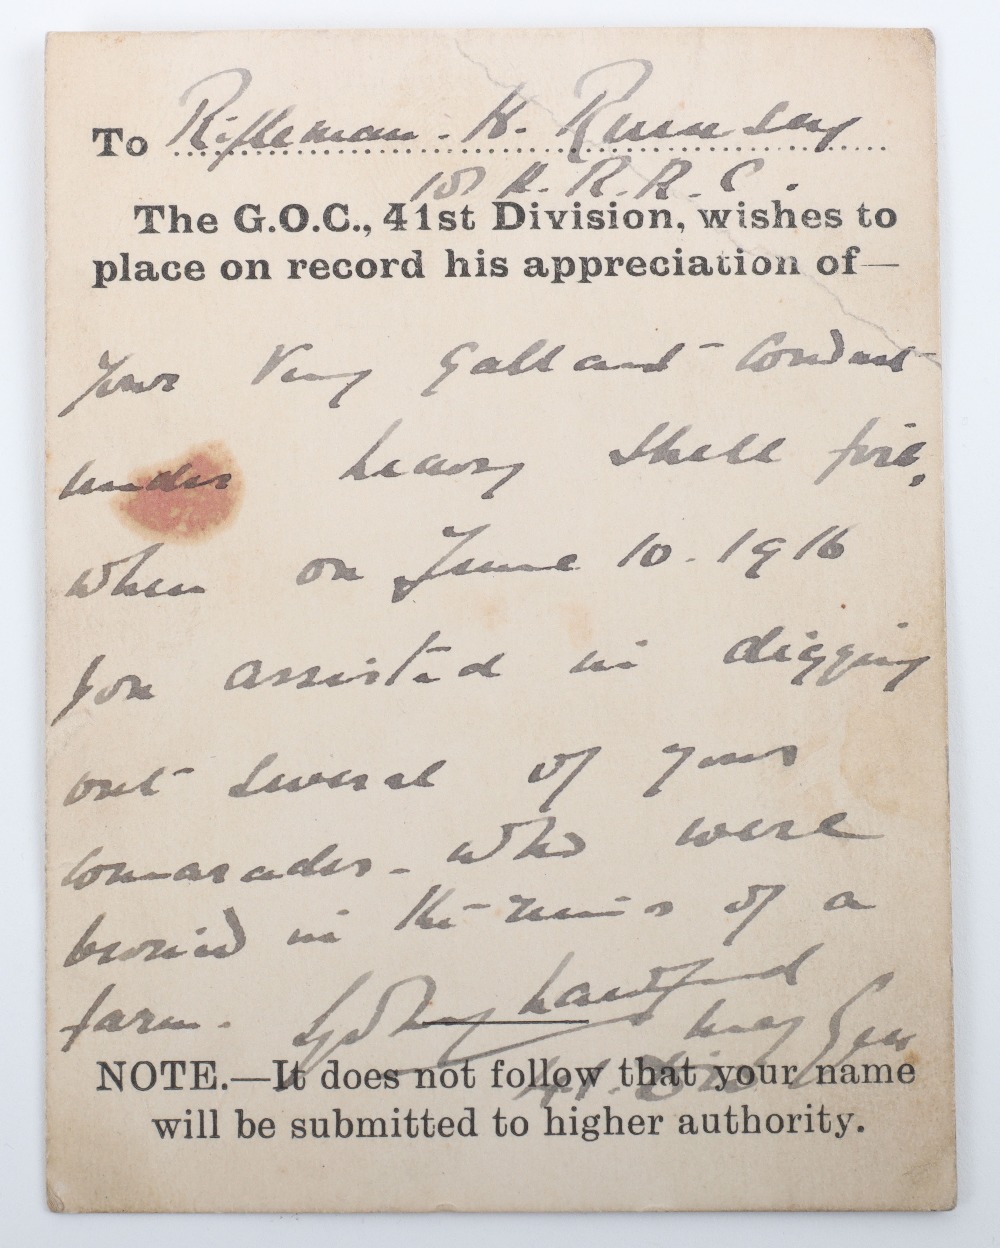 To Rifleman. H. Rumsey
18) K. R. R. C.
The G.O.C., 41st Division, wishes to
place on record his appreciation of—
Your Very Gallant Conduct
under heavy shell fire,
when on June 10. 1916
you assisted in digging
out several of your
comrades - who were
buried in the ruins of a
farm. Sydney Lawford
Maj Gen
41. Div
NOTE.—It does not follow that your name
will be submitted to higher authority.